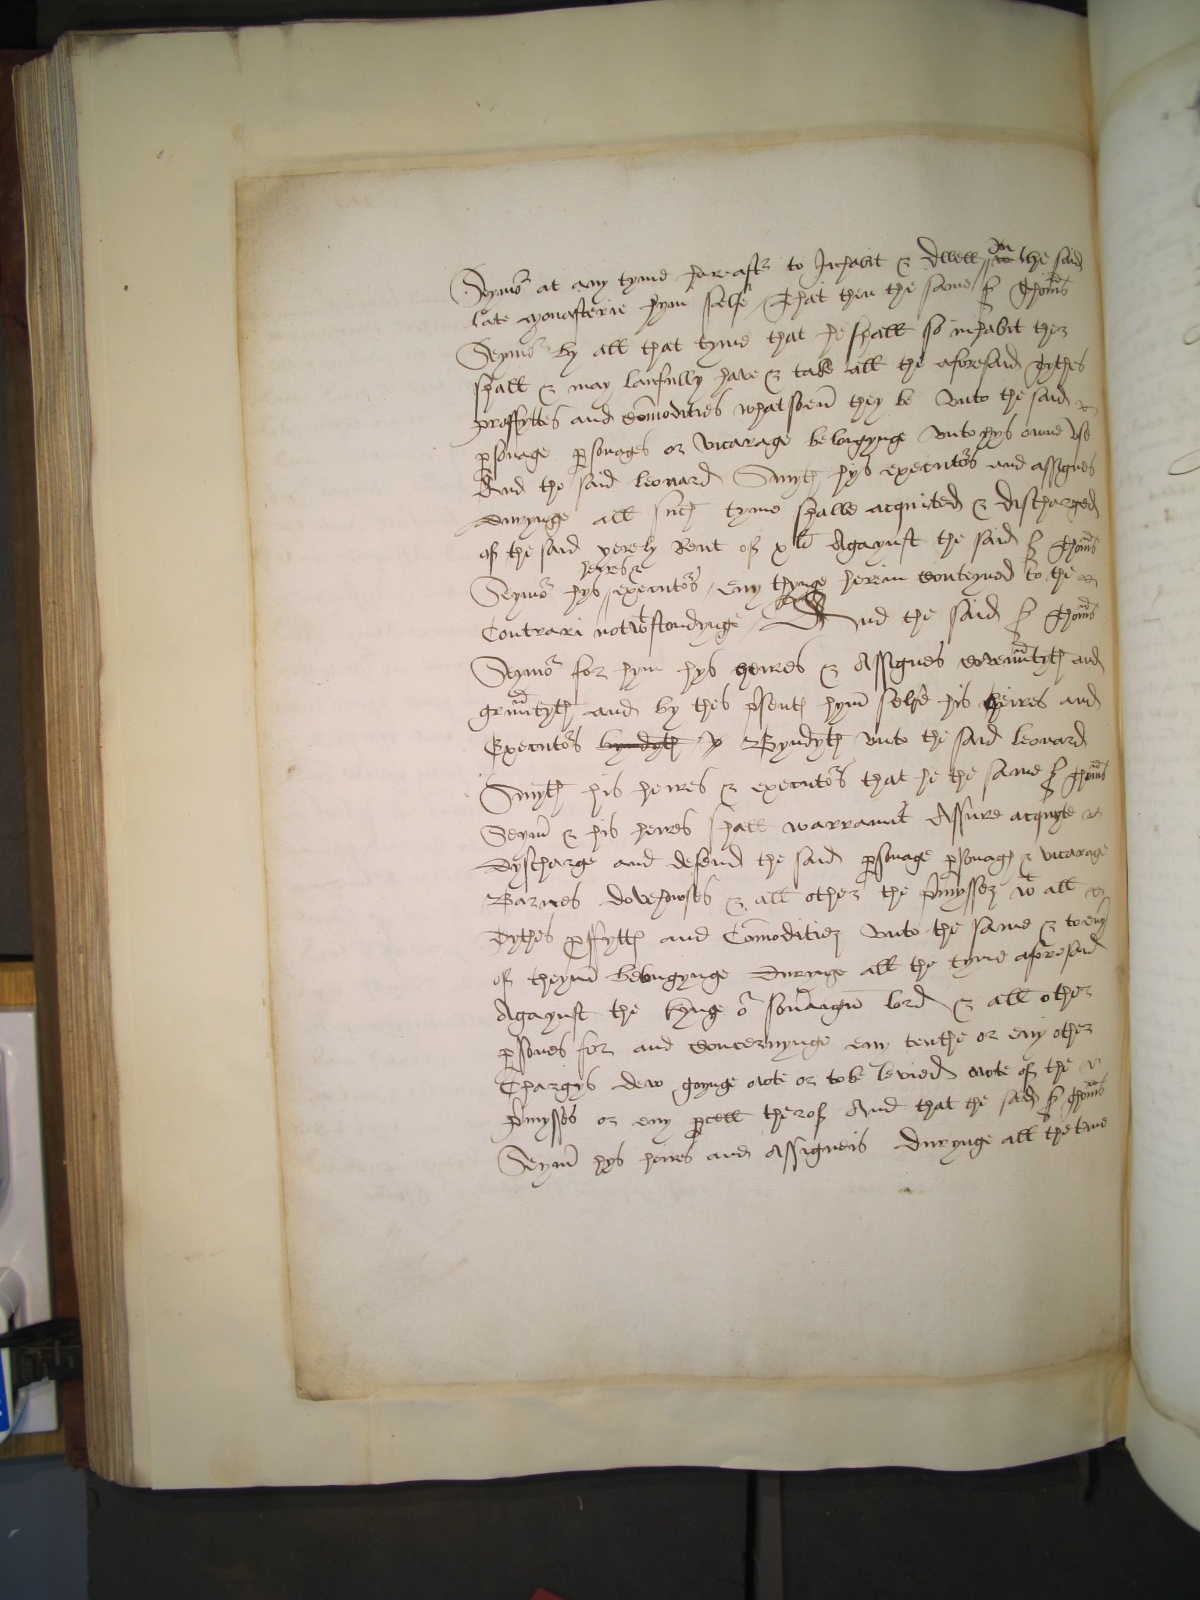 Seymor at any tyme hereaftr to Inhabit & dwell in the said
late monasterie hym selfe / That then the same Sr Thomas
Seymor by all that tyme that he shall so inhabit ther
shall & may laufully have & take all the aforesaid Tythes
proffyttes and comodities whatsoeur they be unto the said
psonage psonages or vicarage belongynge unto hys owne use
And the said leonard Smyth hys executors and assignes
Durynge all such tyme shalbe acquited & discharged
of the said yerely Rent of x li Agaynst the said Sr Thomas
Seymor hys heires & executors / eny thynge herein conteyned to the
Contrari notwtstondynge / And the said Sr Thomas
Seymor for hym hys heires & Assignes covenantyth and
grauntyth and by thes psents hym selfe his heires and
Executors byndyth Byndyth unto the said leonard
Smyth his heires & executors that he the same Sr Thomas
Seymr & his heires shall warrannt Assure acquyte
Dyscharge and defend the said psonage psonages & vicarage
Barnes dovehouses & all other the pmysses wt all
Tythes proffyttes and Comodities unto the same & to eny
of theym belongynge Durynge all the tyme aforesaid
Agaynst the Kynge or souraigne lord & all other
psones for and concernynge eny tenthe or eny other
Chargys dew goynge owte or to be levied owte of the
pmysses or eny pcell therof And that the said Sr Thomas
Seymr hys heires and Assigneis Durynge all the time